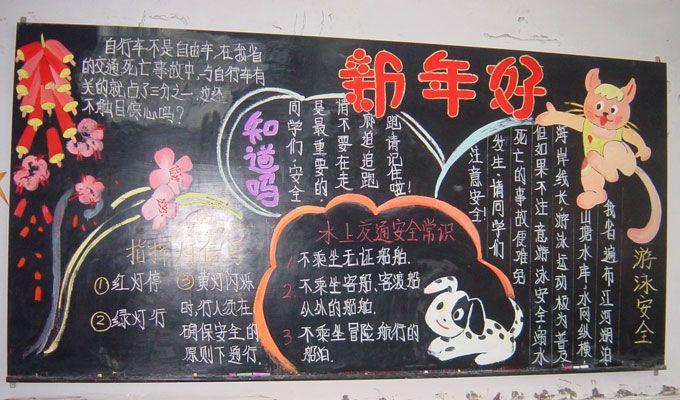 新年好
自行车不是自由车,在我省
的交通死亡事故中,与自行车有
关的就占了三分之一,这还
不触目惊心吗?
知道吗
同学们,安全
是最重要的.
请不要在走
廊追追跑
跑请记住啦!
游泳安全
我省遍布江河湖泊
山塘水库,水网纵横
海岸线长,游泳运动极为普及
但如果不注意游泳安全,溺水
死亡的事故便难免
发生.请同学们
注意安全!
指挥灯信号
①红灯停
②绿灯行
③黄灯闪烁
时,行人须在
确保安全的
原则下通行.
水上交通安全常识
1 不乘坐无证船舶.
2. 不乘坐客船、客渡船
以外的船舶.
3 不乘坐冒险航行的
船舶.